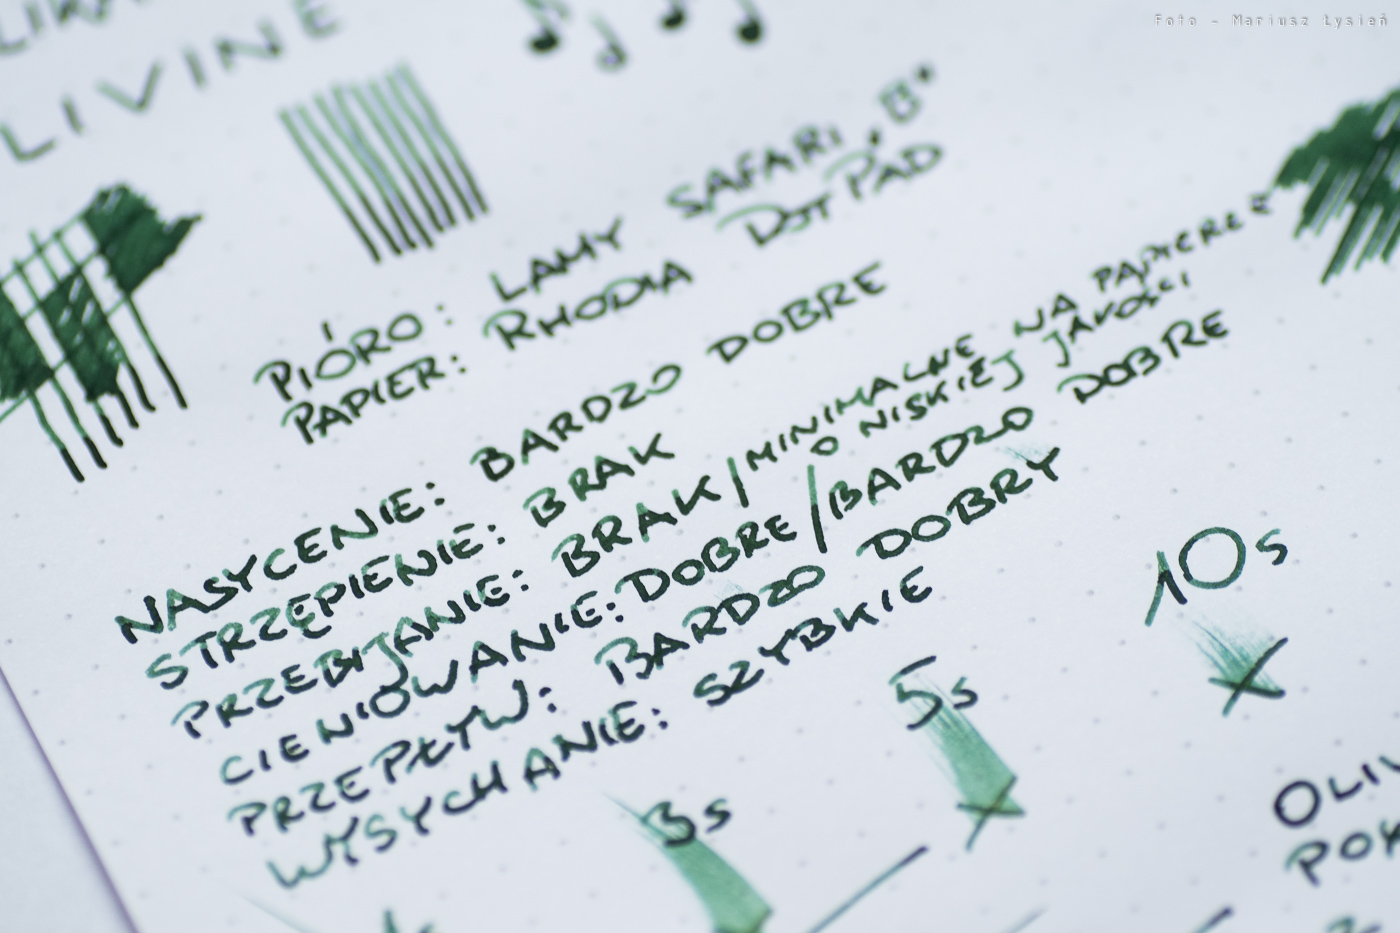 Foto - Mariusz Łysień
LIVINE
PIÓRO: LAMY SAFARI „B"
PAPIER: RHODIA DOT PAD
NASYCENIE: BARDZO DOBRE
STRZĘPIENIE: BRAK
PRZEBIJANIE: BRAK/MINIMALNE NA PAPIERZE
O NISKIEJ JAKOŚCI
CIENIOWANIE: DOBRE/BARDZO DOBRE
PRZEPŁYW: BARDZO DOBRY
WYSYCHANIE: SZYBKIE
3s
5s
10s
OLIV